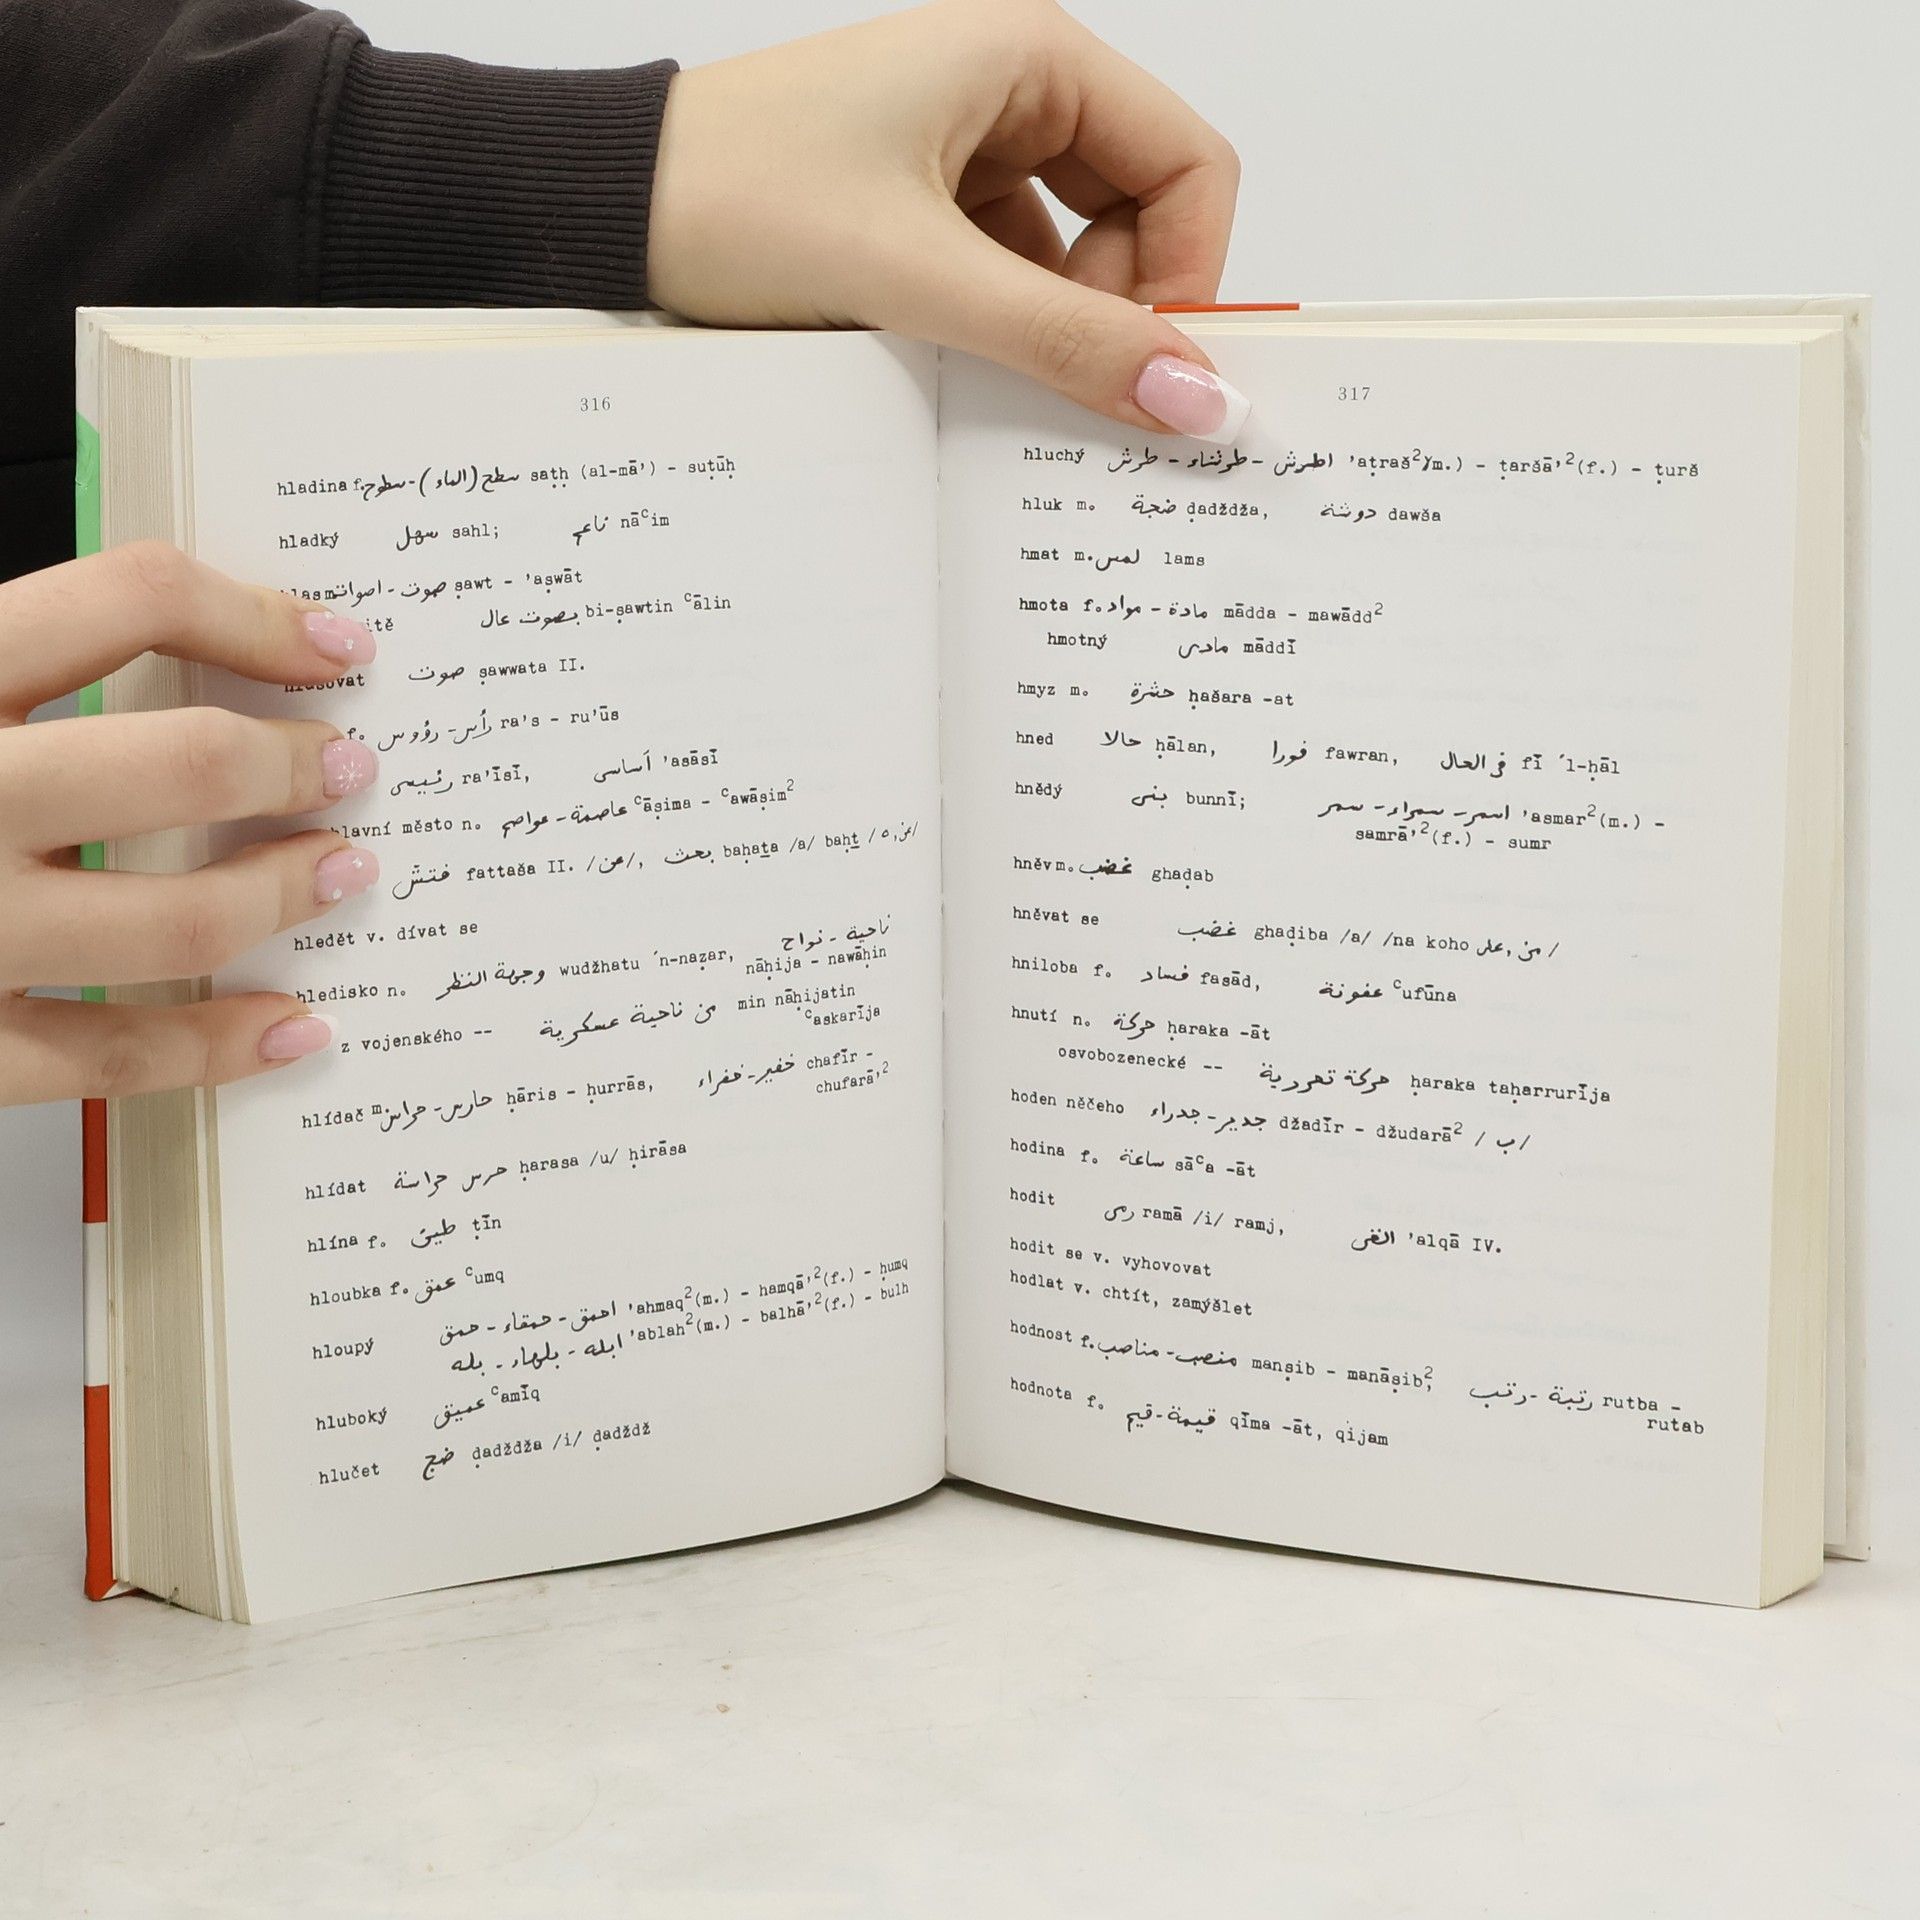 316
hladina f. سطح (الماء) - سطوح saṭḥ (al-mā') - suṭūḥ
hladký سهل sahl; ناعم nāᶜim
hlas m. صوت - اصوات ṣawt - 'aṣwāt
itě بصوت عال bi-ṣawtin ᶜālin
hlasovat صوت ṣawwata II.
f. رأس - رؤوس ra's - ru'ūs
رئيسى ra'īsī, أساسى 'asāsī
hlavní město n. عاصمة - عواصم ᶜāṣima - ᶜawāṣim²
فتش fattaša II. /عن/, بحث baḥaṯa /a/ baḥṯ /ه, عن/
hledět v. dívat se
hledisko n. وجهة النظر wudžhatu ´n-naẓar, ناحية - نواح nāḥija - nawāḥin
z vojenského -- من ناحية عسكرية min nāḥijatin ᶜaskarīja
hlídač m. حارس - حراس ḥāris - ḥurrās, خفير - خفراء chafīr - chufarā'²
hlídat حرس حراسة ḥarasa /u/ ḥirāsa
hlína f. طين ṭīn
hloubka f. عمق ᶜumq
hloupý احمق - حمقاء - حمق 'ahmaq²(m.) - hamqā'²(f.) - ḥumq
ابله - بلهاء - بله 'ablah²(m.) - balhā'²(f.) - bulh
hluboký عميق ᶜamīq
hlučet ضج ḍadždža /i/ ḍadždž
317
hluchý اطرش - طرشاء - طرش 'aṭraš²(m.) - ṭaršā'²(f.) - ṭurš
hluk m. ضجة ḍadždža, دوشة dawša
hmat m. لمس lams
hmota f. مادة - مواد mādda - mawādd²
hmotný مادى māddī
hmyz m. حشرة ḥašara -at
hned حالا ḥālan, فورا fawran, فى الحال fī ´l-ḥāl
hnědý بنى bunnī; اسمر - سمراء - سمر 'asmar²(m.) -
samrā'²(f.) - sumr
hněv m. غضب ghaḍab
hněvat se غضب ghaḍiba /a/ /na koho من, على/
hniloba f. فساد fasād, عفونة ᶜufūna
hnutí n. حركة ḥaraka -āt
osvobozenecké -- حركة تحررية ḥaraka taḥarrurīja
hoden něčeho جدير - جدراء džadīr - džudarā² /ب/
hodina f. ساعة sāᶜa -āt
hodit رمى ramā /i/ ramj, القى 'alqā IV.
hodit se v. vyhovovat
hodlat v. chtít, zamýšlet
hodnost f. منصب - مناصب manṣib - manāṣib², رتبة - رتب rutba -
rutab
hodnota f. قيمة - قيم qīma -āt, qijam